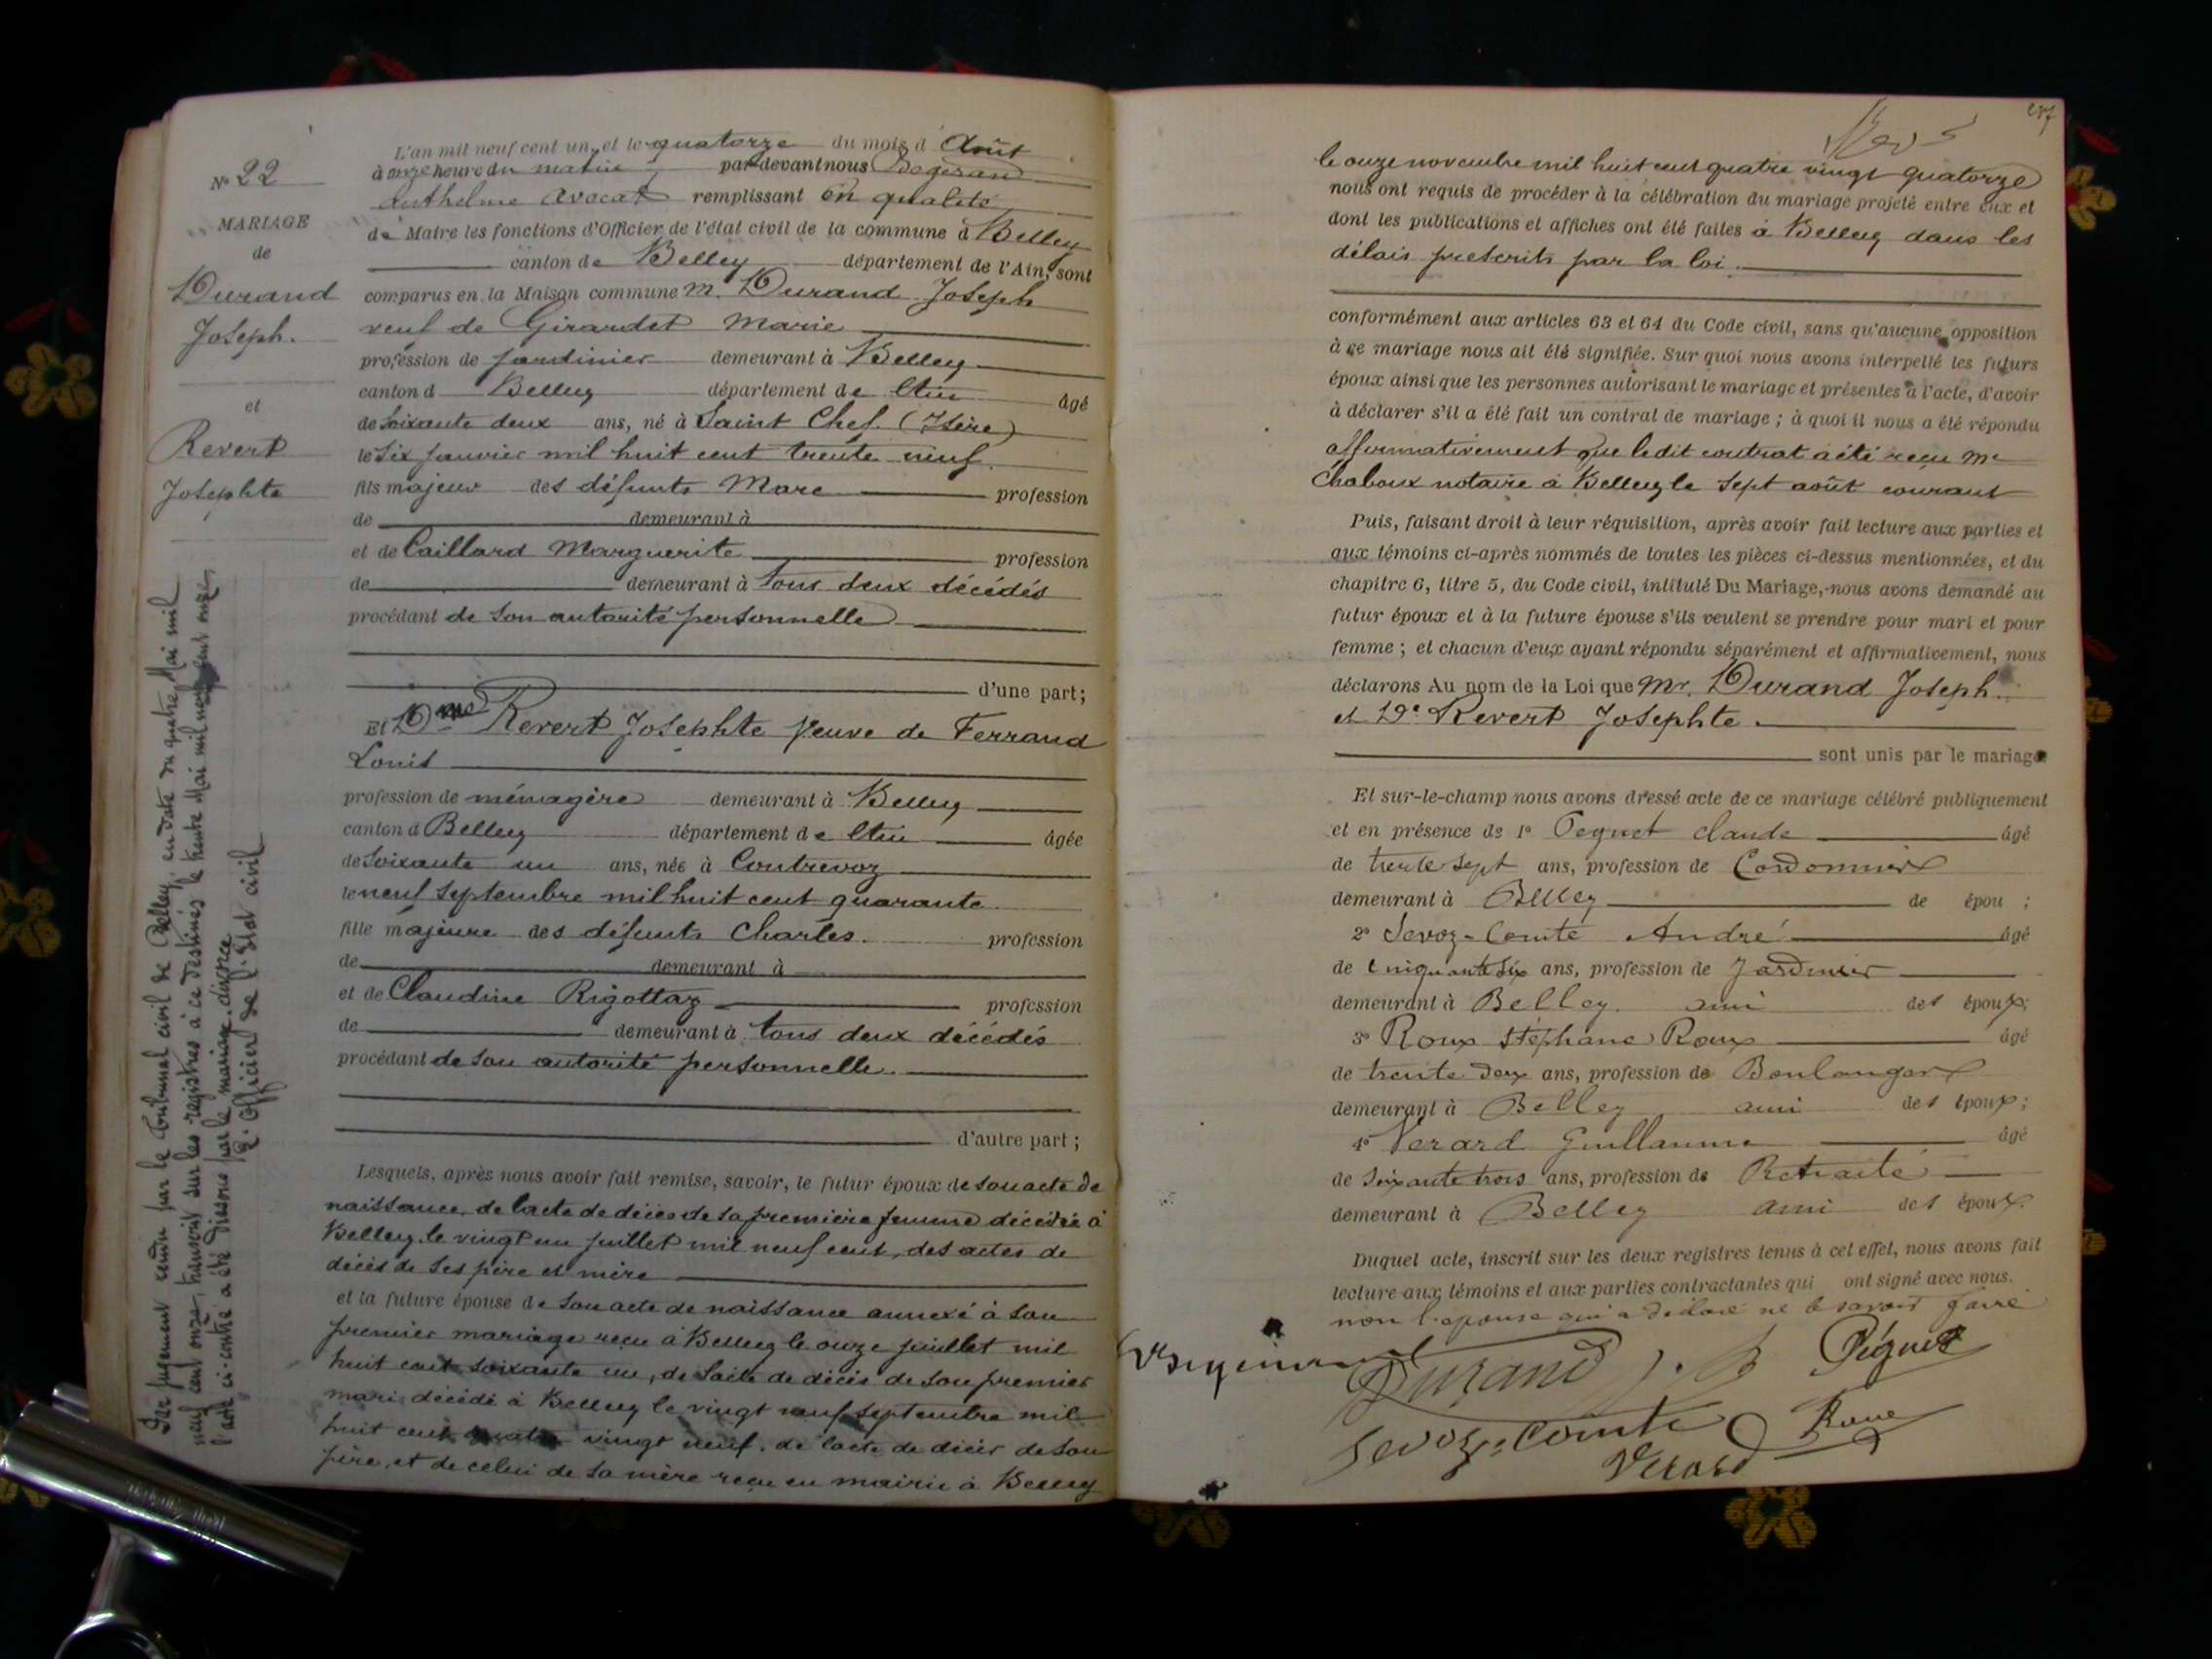 N° 22
MARIAGE
de
Durand
Joseph.
et
Revert
Josephte
Par jugement rendu par le Tribunal civil de Belley, en date du quatre Mai mil
neuf cent onze, transcrit sur les registres à ce destinés le trente Mai mil neuf cent onze,
l'acte ci-contre a été dissous par le mariage. divorce
L'Officier de l'Etat civil
L'an mil neuf cent un, et le quatorze du mois d'Août
à onze heure du matin par devant nous
Anthelme avocat remplissant en qualité
de Maire les fonctions d'Officier de l'état civil de la commune d Belley
canton de Belley département de l'Ain, sont
comparus en la Maison commune M. Durand Joseph
veuf de Girardet Marie
profession de jardinier demeurant à Belley
canton d Belley département de l'Ain âgé
de soixante deux ans, né à Saint Chef. (Isère)
le six janvier mil huit cent trente neuf.
fils majeur des défunts Marc profession
de demeurant à
et de Caillard Marguerite profession
de demeurant à tous deux décédés
procédant de son autorité personnelle
d'une part;
Et Dme Revert Josephte Veuve de Ferrand
Louis
profession de ménagère demeurant à Belley
canton d Belley département de l'Ain âgée
de soixante un ans, née à Contrevoz
le neuf septembre mil huit cent quarante
fille majeure des défunts Charles. profession
de demeurant à
et de Claudine Rigottaz profession
de demeurant à tous deux décédés
procédant de son autorité personnelle.
d'autre part;
Lesquels, après nous avoir fait remise, savoir, le futur époux de son acte de
naissance, de l'acte de décès de sa première femme décédée à
Belley, le vingt un juillet mil neuf cent, des actes de
décès de ses père et mère
et la future épouse de son acte de naissance annexé à son
premier mariage reçu à Belley le onze juillet mil
huit cent soixante un, de l'acte de décès de son premier
mari décédé à Belley le vingt neuf septembre mil
huit cent quatre vingt neuf. de l'acte de décès de son
père, et de celui de sa mère reçu en mairie à Belley
le onze novembre mil huit cent quatre vingt quatorze
nous ont requis de procéder à la célébration du mariage projeté entre eux et
dont les publications et affiches ont été faites à Belley dans les
délais prescrits par la loi.
conformément aux articles 63 et 64 du Code civil, sans qu'aucune opposition
à ce mariage nous ait été signifiée. Sur quoi nous avons interpellé les futurs
époux ainsi que les personnes autorisant le mariage et présentes à l'acte, d'avoir
à déclarer s'il a été fait un contrat de mariage; à quoi il nous a été répondu
affirmativement que ledit contrat a été reçu Me
Chaboux notaire à Belley le sept août courant
Puis, faisant droit à leur réquisition, après avoir fait lecture aux parties et
aux témoins ci-après nommés de toutes les pièces ci-dessus mentionnées, et du
chapitre 6, titre 5, du Code civil, intitulé Du Mariage, nous avons demandé au
futur époux et à la future épouse s'ils veulent se prendre pour mari et pour
femme; et chacun d'eux ayant répondu séparément et affirmativement, nous
déclarons Au nom de la Loi que Mr. Durand Joseph.
et De Revert Josephte.
sont unis par le mariage
Et sur-le-champ nous avons dressé acte de ce mariage célébré publiquement
et en présence de 1° Peguet Claude âgé
de trente sept ans, profession de Cordonnier
demeurant à Belley de épou ;
2° Sevoz-Comte André âgé
de cinquante six ans, profession de Jardinier
demeurant à Belley. ami des époux;
3° Roux Stéphane Roux âgé
de trente deux ans, profession de Boulanger
demeurant à Belley ami des époux;
4° Verard Guillaume âgé
de soixante trois ans, profession de Retraité
demeurant à Belley ami des époux.
Duquel acte, inscrit sur les deux registres tenus à cet effet, nous avons fait
lecture aux témoins et aux parties contractantes qui ont signé avec nous.
non l'épouse qui a déclaré ne le savoir faire
Durand J. Péguet
Sevoz-Comte Roux
Verard